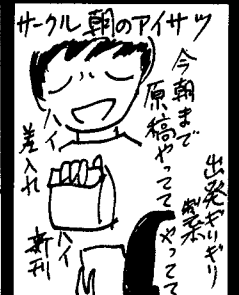 サークル朝のアイサツ
今朝まで
原稿やってて
出発ギリギリ
やってて
ハイ
差入れ
ハイ
新刊